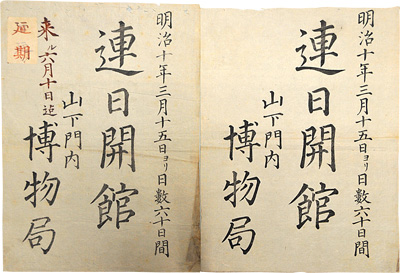 明治十年三月十五日ヨリ日數六十日間
連日開館
山下門内
博物局
明治十年三月十五日ヨリ日數六十日間
連日開館
山下門内
博物局
来ル六月十日迄
延期